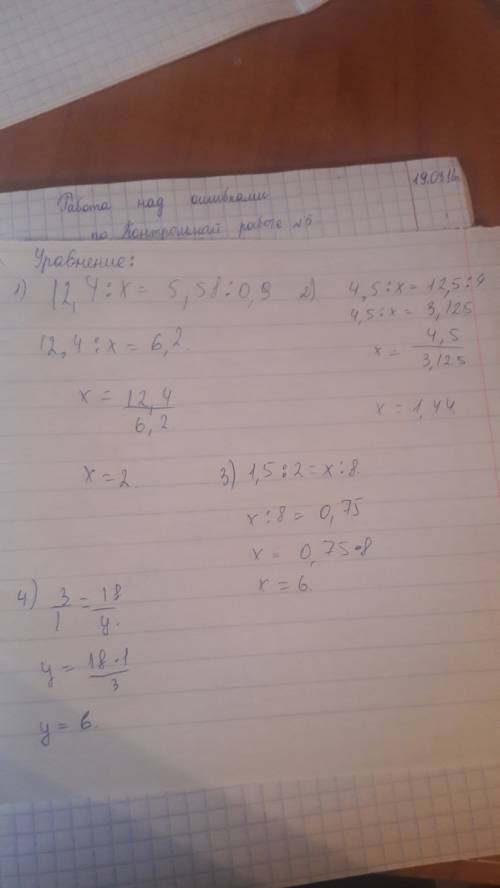 19.09.16
Работа над ошибками
по Контрольной работе №5
Уравнение:
1) 12,4:x= 5,58:0,9
12,4:x= 6,2.
x= 12,4/6,2
x=2.
2) 4,5:x=12,5:4
4,5:x= 3,125
x= 4,5/3,125
x=1,44
3) 1,5:2=x:8.
x:8= 0,75
x= 0,75•8
x=6.
4) 3/1=18/y.
y= 18•1/3
y= 6.